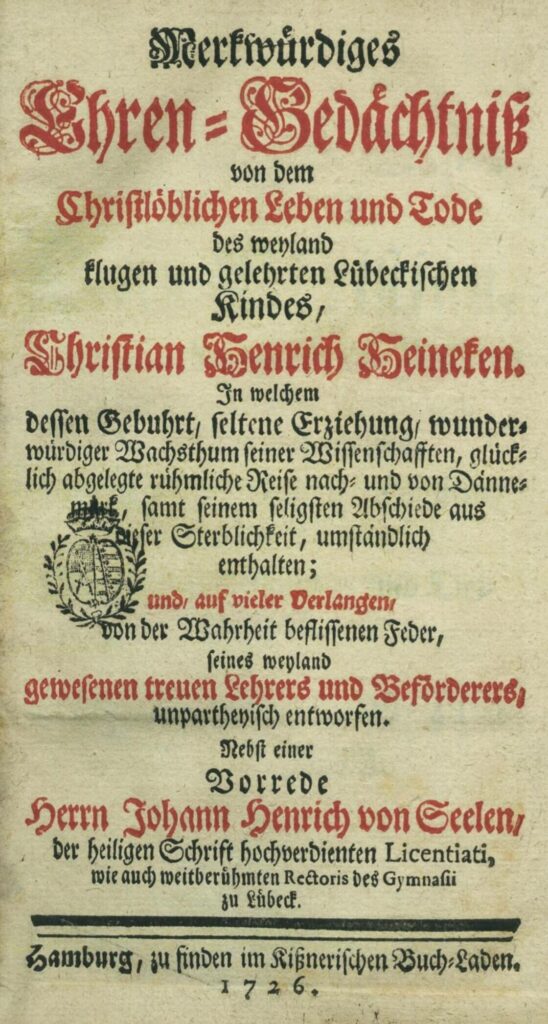 Merkwürdiges
Ehren-Gedächtniß
von dem
Christlöblichen Leben und Tode
des weyland
klugen und gelehrten Lübeckischen
Kindes/
Christian Henrich Heineken.
In welchem
dessen Gebuhrt/ seltene Erziehung/ wunder-
würdiger Wachsthum seiner Wissenschafften, glück-
lich abgelegte rühmliche Reise nach- und von Dänne-
mark, samt seinem seligsten Abschiede aus
dieser Sterblichkeit, umständlich
enthalten;
und/ auf vieler Verlangen/
von der Wahrheit beflissenen Feder,
seines weyland
gewesenen treuen Lehrers und Beförderers,
unpartheyisch entworfen.
Nebst einer
Vorrede
Herrn Johann Henrich von Seelen/
der heiligen Schrift hochverdienten Licentiati,
wie auch weitberühmten Rectoris des Gymnasii
zu Lübeck.
Hamburg, zu finden im Kißnerischen Buch-Laden.
1726.